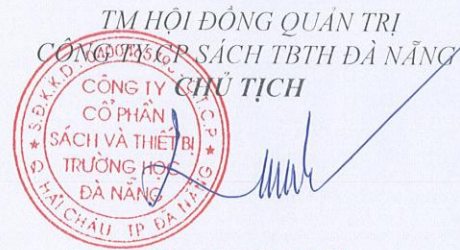 TM HỘI ĐỒNG QUẢN TRỊ
CÔNG TY CP SÁCH TBTH ĐÀ NẴNG
CHỦ TỊCH
CÔNG TY
CỔ PHẦN
SÁCH VÀ THIẾT BỊ
TRƯỜNG HỌC
ĐÀ NẴNG
Q. HẢI CHÂU TP ĐÀ NẴNG